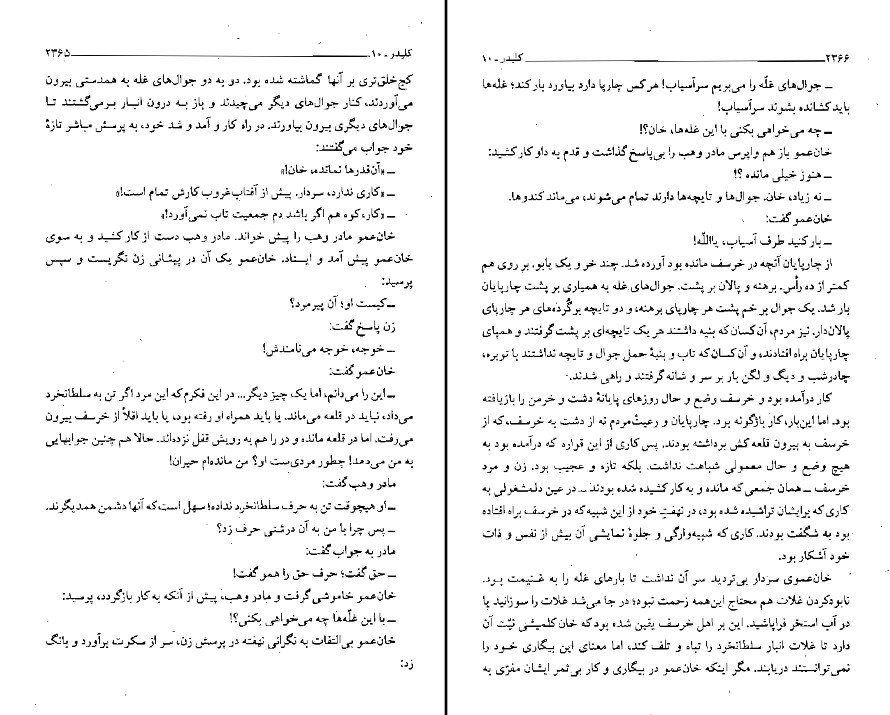 کلیدر ـ ۱۰ ۲۳۶۵
کج‌خلق‌تری بر آنها گماشته شده بود. دو به دو جوال‌های غله به همدستی بیرون
می‌آوردند، کنار جوال‌های دیگر می‌چیدند و باز به درون انبار برمی‌گشتند تا
جوال‌های دیگری بیرون بیاورند. در راه کار و آمد و شد خود، به پرسش مباشر تازهٔ
خود جواب می‌گفتند:
ـ «آن‌قدرها نمانده، خان!»
ـ «کاری ندارد، سردار. پیش از آفتاب‌غروب کارش تمام است!»
ـ «کار، کوه هم اگر باشد دم جمعیت تاب نمی‌آورد!»
خان‌عمو مادر وهب را پیش خواند. مادر وهب دست از کار کشید و به سوی
خان‌عمو پیش آمد و ایستاد. خان‌عمو یک آن در پیشانی زن نگریست و سپس
پرسید:
ـ کیست او؛ آن پیرمرد؟
زن پاسخ گفت:
ـ خوجه، خوجه می‌نامندش!
خان‌عمو گفت:
ـ این را می‌دانم، اما یک چیز دیگر... در این فکرم که این مرد اگر تن به سلطانخرد
می‌داد، نباید در قلعه می‌ماند. یا باید همراه او رفته بود، یا باید اقلاً از خرسف بیرون
می‌رفت. اما در قلعه مانده و در را هم به رویش قفل نزده‌اند. حالا هم چنین جوابهایی
به من می‌دهد! چطور مردی‌ست او؟ من مانده‌ام حیران!
مادر وهب گفت:
ـ او هیچوقت تن به حرف سلطانخرد نداده؛ سهل است که آنها دشمن همدیگرند.
ـ پس چرا با من به آن درشتی حرف زد؟
مادر به جواب گفت:
ـ حق گفت؛ حرف حق را همو گفت!
خان‌عمو خاموشی گرفت و مادر وهب، پیش از آنکه به کار بازگردد، پرسید:
ـ با این غلّه‌ها چه می‌خواهی بکنی؟!
خان‌عمو بی‌التفات به نگرانی نهفته در پرسش زن، سر از سکوت برآورد و بانگ
زد:
۲۳۶۶ کلیدر ـ ۱۰
ـ جوال‌های غلّه را می‌بریم سرآسیاب! هرکس چارپا دارد بیاورد بار کند؛ غله‌ها
باید کشانده بشوند سرآسیاب!
ـ چه می‌خواهی بکنی با این غله‌ها، خان؟!
خان‌عمو باز هم واپرس مادر وهب را بی‌پاسخ گذاشت و قدم به داو کار کشید:
ـ هنوز خیلی مانده ؟!
ـ نه زیاد، خان. جوال‌ها و تایچه‌ها دارند تمام می‌شوند، می‌ماند کندوها.
خان‌عمو گفت:
ـ بار کنید طرف آسیاب، یاالله!
از چارپایان آنچه در خرسف مانده بود آورده شد. چند خر و یک یابو. بر روی هم
کمتر از ده رأس. برهنه و پالان بر پشت. جوال‌های غله به همیاری بر پشت چارپایان
بار شد. یک جوال بر خم پشت هر چارپای برهنه، و دو تایچه بر گُرده‌های هر چارپای
پالان‌دار. نیز مردم، آن کسان که بنیه داشتند هر یک تایچه‌ای بر پشت گرفتند و همپای
چارپایان براه افتادند، و آن کسان که تاب و بنیهٔ حمل جوال و تایچه نداشتند با توبره،
چادرشب و دیگ و لگن بار بر سر و شانه گرفتند و راهی شدند.
کار درآمده بود و خرسف وضع و حال روزهای پایانهٔ دشت و خرمن را بازیافته
بود. اما این‌بار، کار باژگونه بود. چارپایان و رعیت‌مردم نه از دشت به خرسف، که از
خرسف به بیرون قلعه کش برداشته بودند. پس کاری از این قواره که درآمده بود به
هیچ وضع و حال معمولی شباهت نداشت. بلکه تازه و عجیب بود. زن و مرد
خرسف ـ همان جمعی که مانده و به کار کشیده شده بودند ـ در عین دلمشغولی به
کاری که برایشان تراشیده شده بود، در نهفتِ خود از این شبیه که در خرسف براه افتاده
بود به شگفت بودند. کاری که شبیه‌وارگی و جلوهٔ نمایشی آن بیش از نفس و ذات
خود آشکار بود.
خان‌عموی سردار بی‌تردید سر آن نداشت تا بارهای غله را به غنیمت ببرد.
نابودکردن غلات هم محتاج این‌همه زحمت نبود؛ در جا می‌شد غلات را سوزانید یا
در آب استخر فراپاشید. این بر اهل خرسف یقین شده بود که خان کلمیشی نیّت آن
دارد تا غلات انبار سلطانخرد را تباه و تلف کند، اما معنای این بیگاری خود را
نمی‌توانستند دریابند. مگر اینکه خان‌عمو در بیگاری و کار بی‌ثمر ایشان مفرّی به